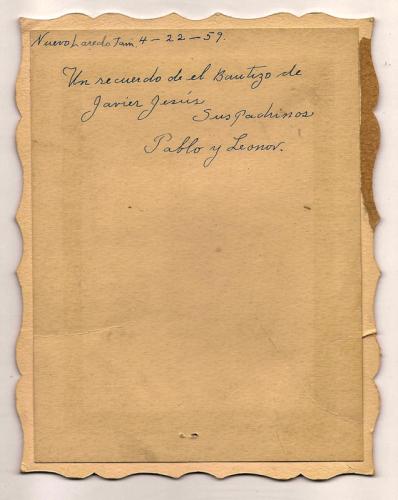 Nuevo Laredo Tam. 4-22-59.
Un recuerdo de el Bautizo de
Javier Jesús
Sus Padrinos
Pablo y Leonor.